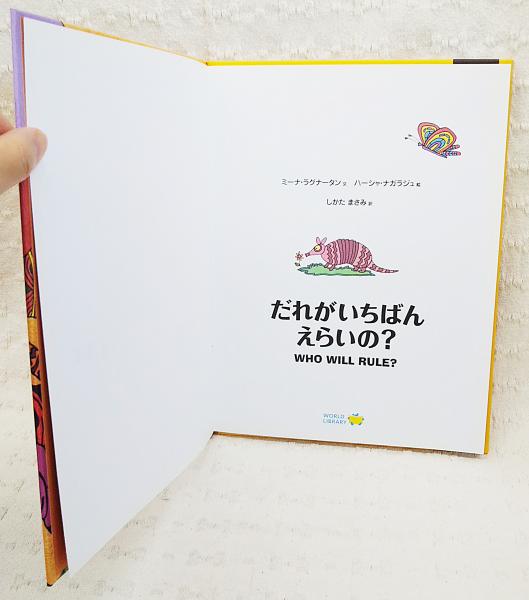 ミーナ・ラグナータン 文 ハーシャ・ナガラジュ 絵
しかた まさみ 訳
だれがいちばん
えらいの？
WHO WILL RULE?
WORLD
LIBRARY